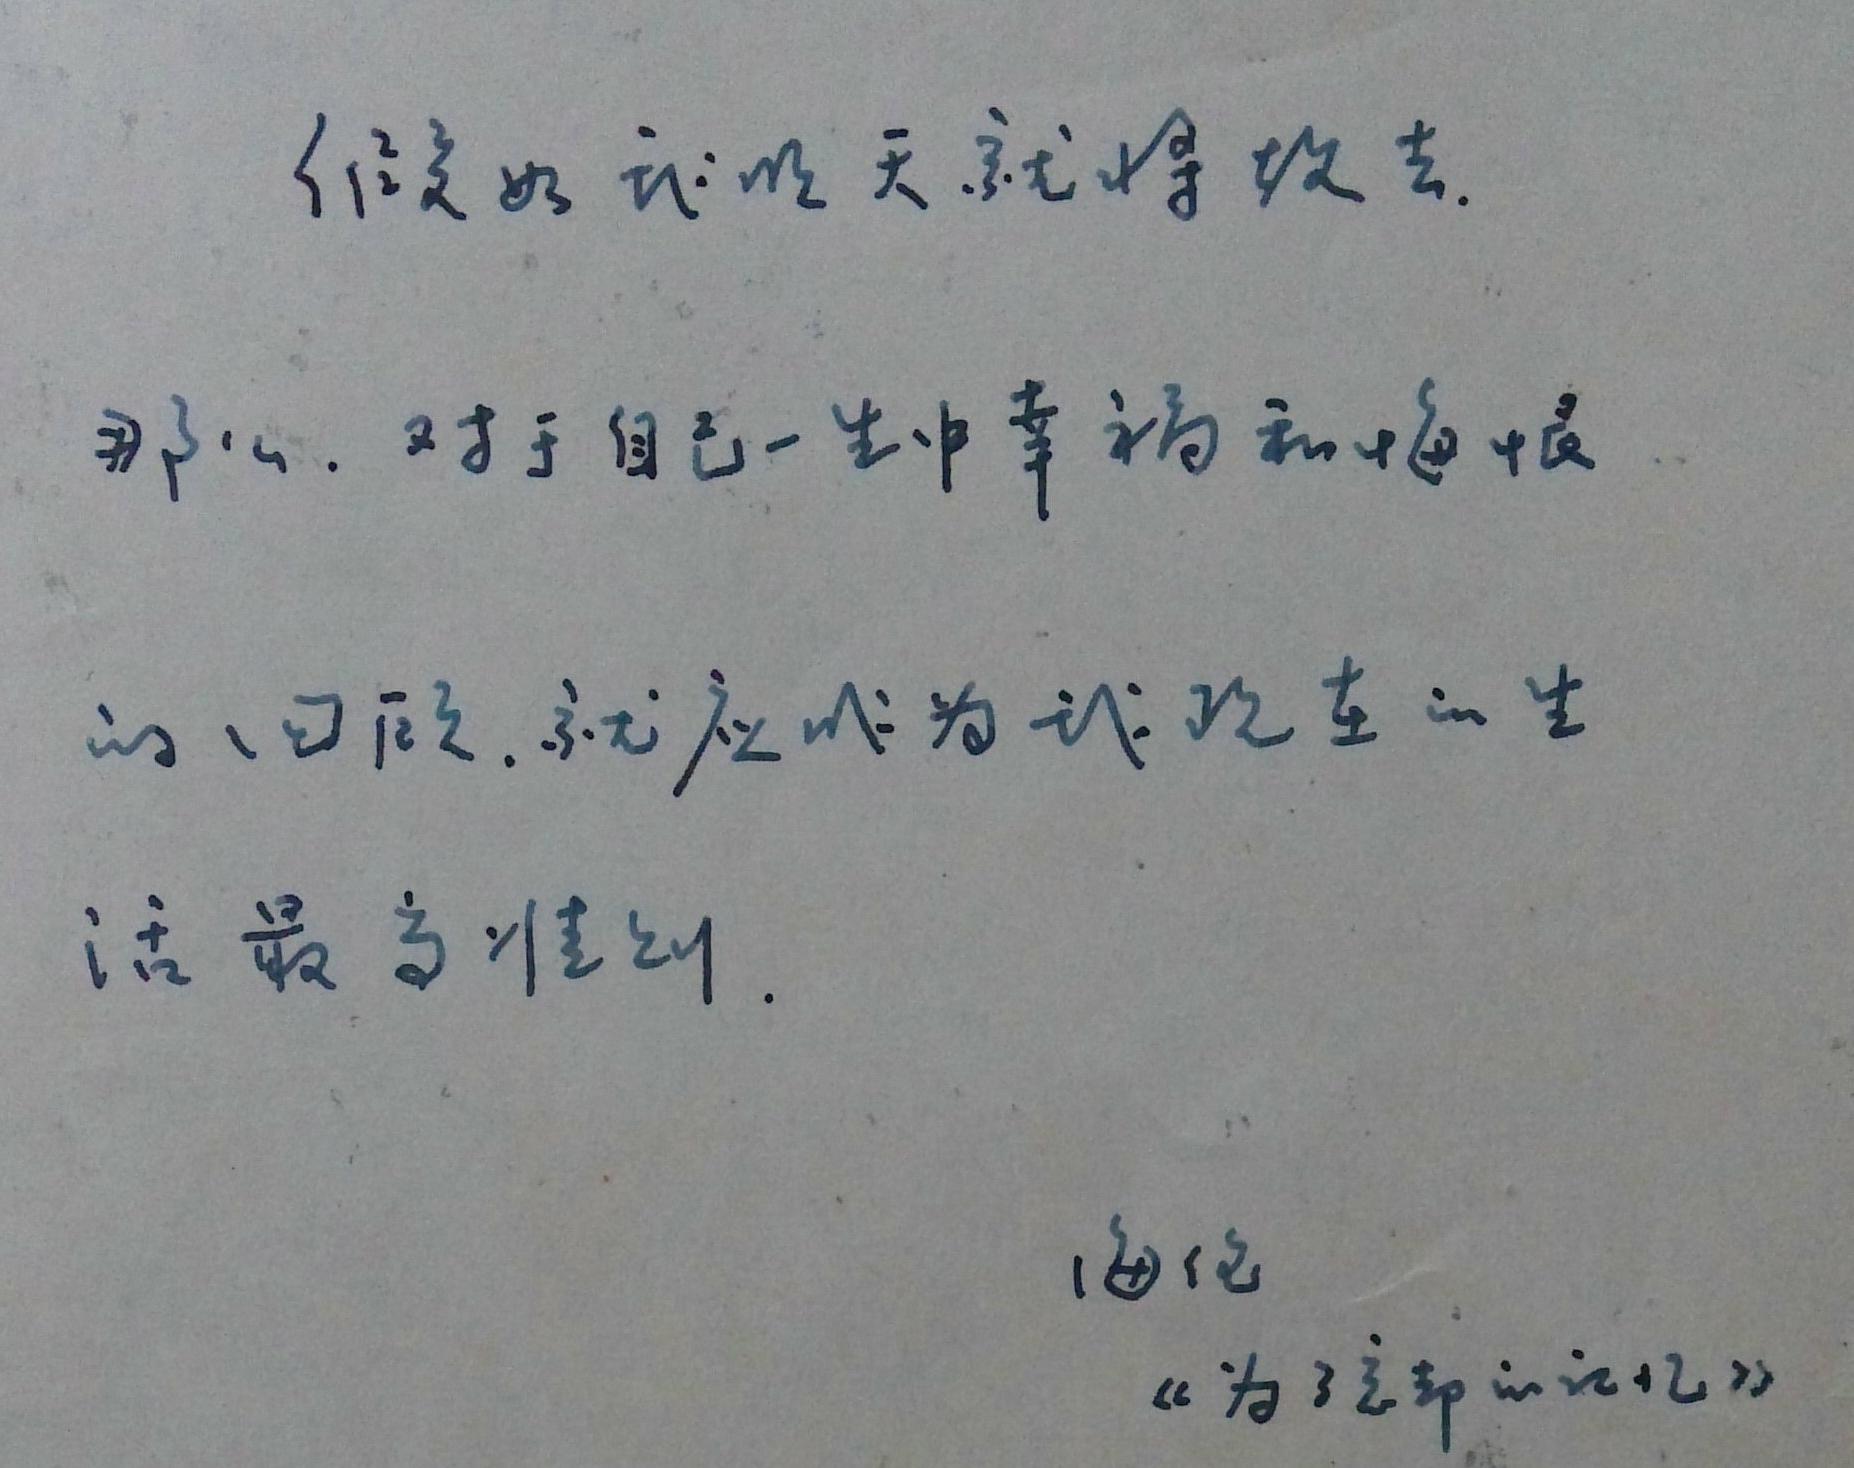 假如我明天就将故去.
那么.对于自己一生中幸福和悔恨
的回顾.就应成为我现在的生
活最高准则.
海伦
《为了忘却的记忆》